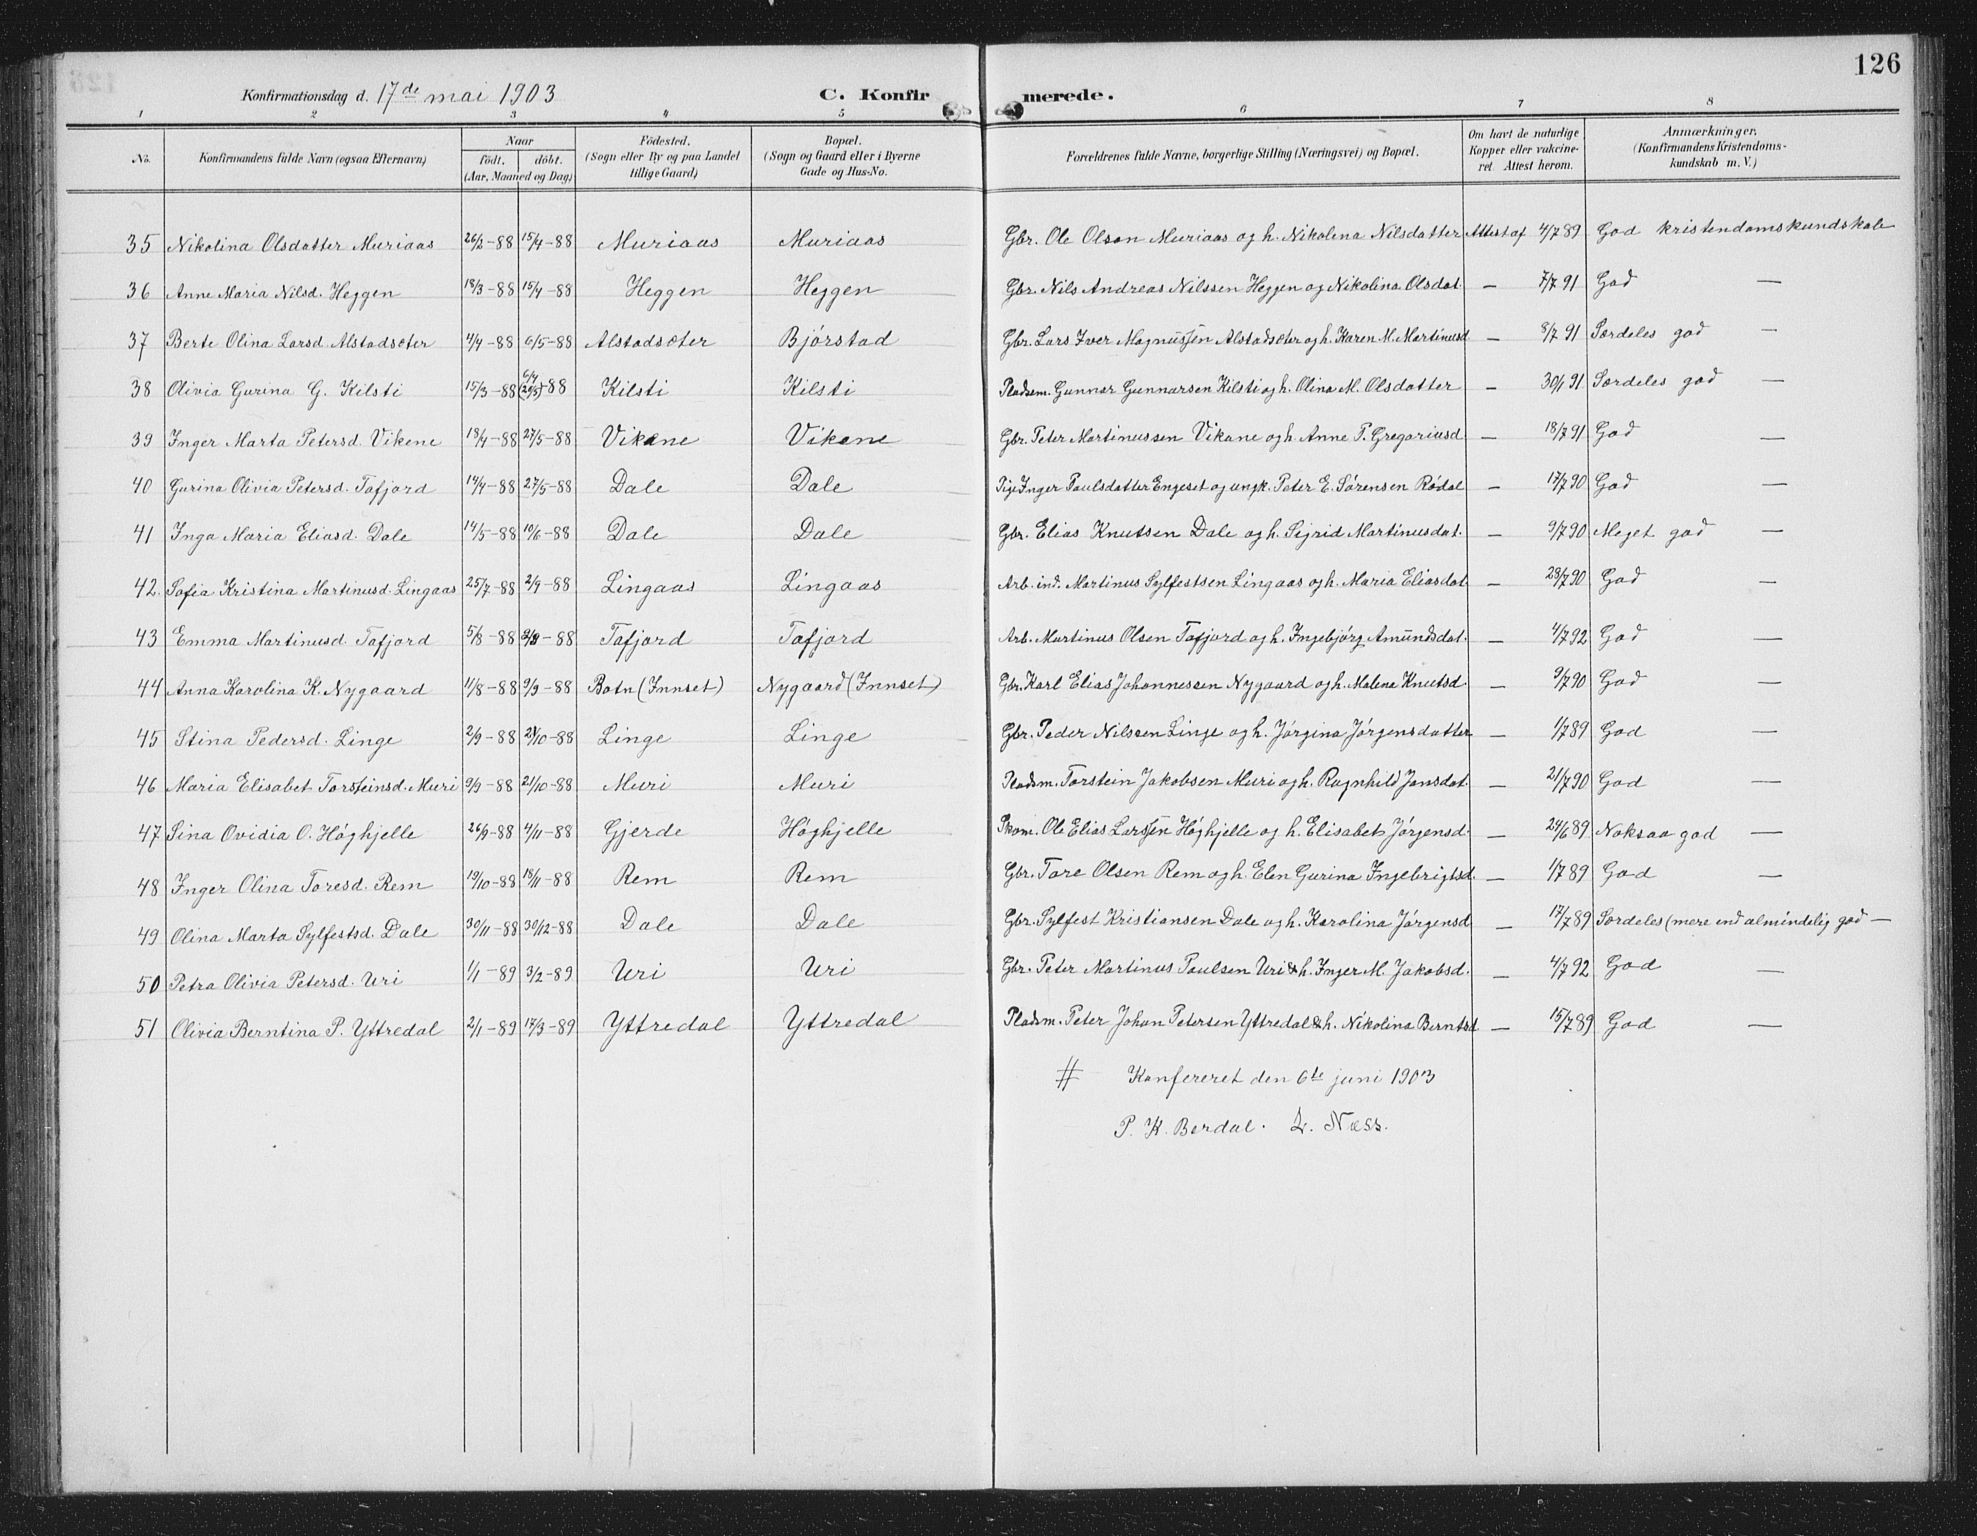 126
Konfirmationsdag d. 17de mai 1903 C. Konfirmerede.
1 2 3 4 5 6 7 8
No. Konfirmandens fulde Navn (ogsaa Efternavn) Naar födt. döbt. (Aar, Maaned og Dag) Födested. (Sogn eller By og paa Landet tillige Gaard) Bopæl. (Sogn og Gaard eller i Byerne Gade og Hus-No. Forældrenes fulde Navne, borgerlige Stilling (Næringsvei) og Bopæl. Om havt de naturlige Kopper eller vakcineret. Attest herom. Anmærkninger. (Konfirmandens Kristendomskundskab m. V.)
35 Nikolina Olsdatter Muriaas 26/2-88 15/4-88 Muriaas Muriaas Gbr. Ole Olson Muriaas og h. Nikolina Nilsdatter Attest af 4/7 89 God kristendomskundskab
36 Anne Maria Nilsd. Heggen 18/3-88 15/4-88 Heggen Heggen Gbr. Nils Andreas Nilssen Heggen og Nikolina Olsdat. — 7/7 91 God —
37 Berte Olina Larsd. Alstadsæter 4/4-88 6/5-88 Alstadsæter Bjórstad Gbr. Lars Iver Magnussen Alstadsæter og h. Karen M. Martinusd — 8/7 91 Særdeles god —
38 Olivia Gurina G. Kilsti 15/3-88 -88 Kilsti Kilsti Pladsm. Gunnar Gunnarsen Kilsti og h. Olina M. Olsdatter — 30/1 91 Særdeles god —
39 Inger Marta Petersd. Vikene 18/4-88 27/5-88 Vikane Vikane Gbr. Peter Martinussen Vikane og h. Anne P. Gregoriusd — 18/7 91 God —
40 Gurina Olivia Petersd. Tafjord 14/4-88 27/5-88 Dale Dale Pige Inger Paulsdatter Engeset og ungk. Peter E. Sórensen Ródal — 17/7 90 God —
41 Inga Maria Eliasd. Dale 14/5-88 10/6-88 Dale Dale Gbr. Elias Knutsen Dale og h. Sigrid Martinusdat. — 9/7 90 Meget god —
42 Sofia Kristina Martinusd. Lingaas 25/7-88 2/9-88 Lingaas Lingaas Arb. ind. Martinus Sylfestsen Lingaas og h. Maria Eliasdat — 28/7 90 God —
43 Emma Martinusd. Tafjord 5/8-88 2/9-88 Tafjord Tafjord Arb. Martinus Olsen Tafjord og h. Ingebjórg Amundsdat. — 4/7 92 God —
44 Anna Karolina K. Nygaard 11/8-88 9/9-88 Botn (Innset) Nygaard (Innset) Gbr. Karl Elias Johannessen Nygaard og h. Malena Knutsd. — 9/7 90 God —
45 Stina Pedersd. Linge 2/9-88 21/10-88 Linge Linge Gbr. Peder Nilssen Linge og h. Jórgina Jórgensdatter — 1/7 89 God —
46 Maria Elisabet Torsteinsd. Muri 9/9-88 21/10-88 Muri Muri Pladsm. Torstein Jakobsen Muri og h. Ragnhild Jonsdat. — 21/7 90 God —
47 Sina Ovidia O. Hóghjelle 26/9-88 4/11-88 Gjerde Hóghjelle Ole Elias Larssen Hóghjelle og h. Elisabet Jórgensd. — 24/6 89 Noksaa god —
48 Inger Olina Toresd. Rem 19/10-88 18/11-88 Rem Rem Gbr. Tore Olsen Rem og h. Elen Gurina Ingebrigtsd. — 1/7 89 God —
49 Olina Marta Sylfestsd. Dale 30/11-88 30/12-88 Dale Dale Gbr. Sylfest Kristiansen Dale og h. Karolina Jórgensd — 17/7 89 Særdeles (mere end almindelig god —
50 Petra Olivia Petersd. Uri 1/1-89 3/2-89 Uri Uri Gbr. Peter Martinus Paulsen Uri & h. Inger M. Jakobsd. — 4/7 92 God —
51 Olivia Berntina P. Yttredal 2/1-89 17/3-89 Yttredal Yttredal Pladsm. Peter Johan Petersen Yttredal & h. Nikolina Berntsd — 15/7 89 God —
# Konfereret den 6te juni 1903
P. K. Berdal. L. Næss.